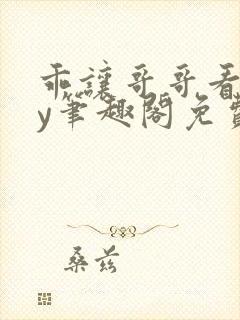 乖讓哥哥看
y筆趣閣免費
桑兹